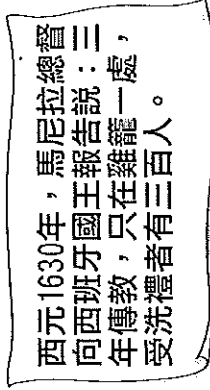 西元1630年，馬尼拉總督
向西班牙國王報告說：三
年傳教，只在雞籠一處，
受洗禮者有三百人。